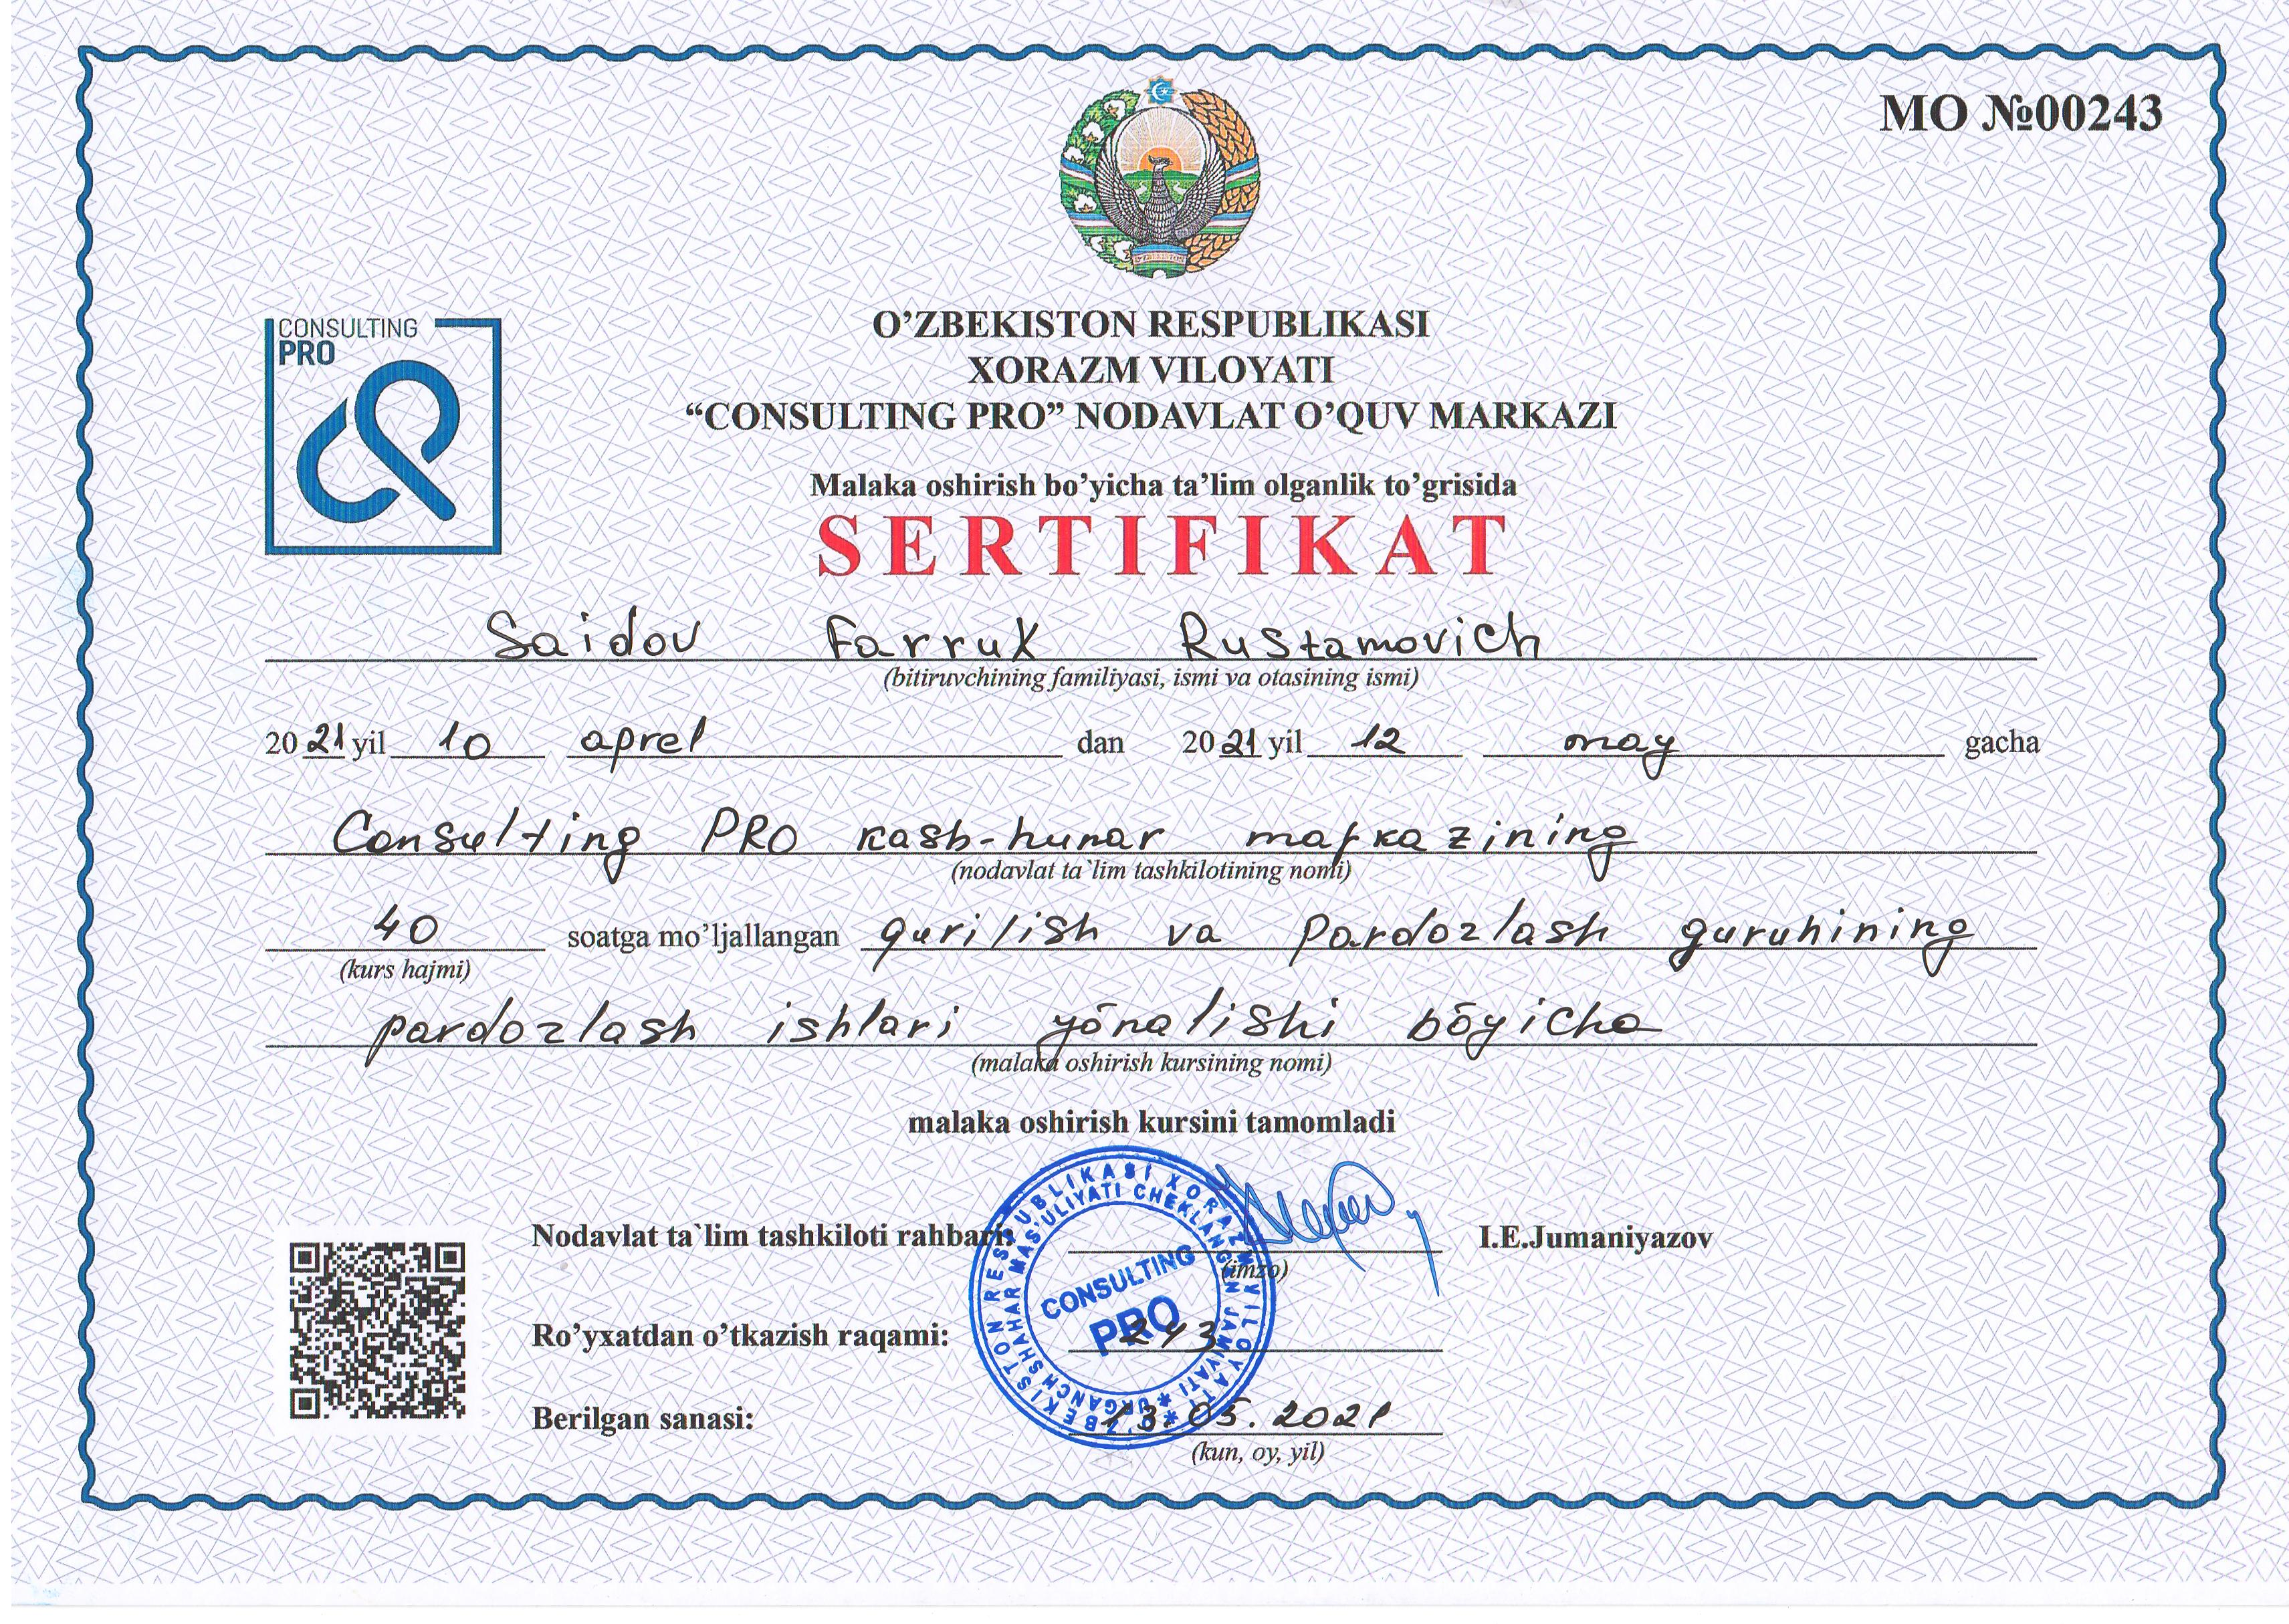 MO №00243
CONSULTING
PRO
O’ZBEKISTON RESPUBLIKASI
XORAZM VILOYATI
“CONSULTING PRO” NODAVLAT O’QUV MARKAZI
Malaka oshirish bo’yicha ta’lim olganlik to’grisida
SERTIFIKAT
Saidov Farrux Rustamovich
(bitiruvchining familiyasi, ismi va otasining ismi)
2021 yil 10 aprel dan 2021 yil 12 may gacha
Consulting PRO kasb-hunar markazining
(nodavlat ta`lim tashkilotining nomi)
40 soatga mo’ljallangan qurilish va pardozlash guruhining
(kurs hajmi)
pardozlash ishlari yōnalishi bōyicha
(malaka oshirish kursining nomi)
malaka oshirish kursini tamomladi
Nodavlat ta`lim tashkiloti rahbari: I.E.Jumaniyazov
(imzo)
Ro’yxatdan o’tkazish raqami: 243
Berilgan sanasi: 13.05.2021
(kun, oy, yil)
O'ZBEKISTON RESPUBLIKASI XORAZM VILOYATI
URGANCH SHAHAR MAS'ULIYATI CHEKLANGAN JAMIYATI
CONSULTING
PRO